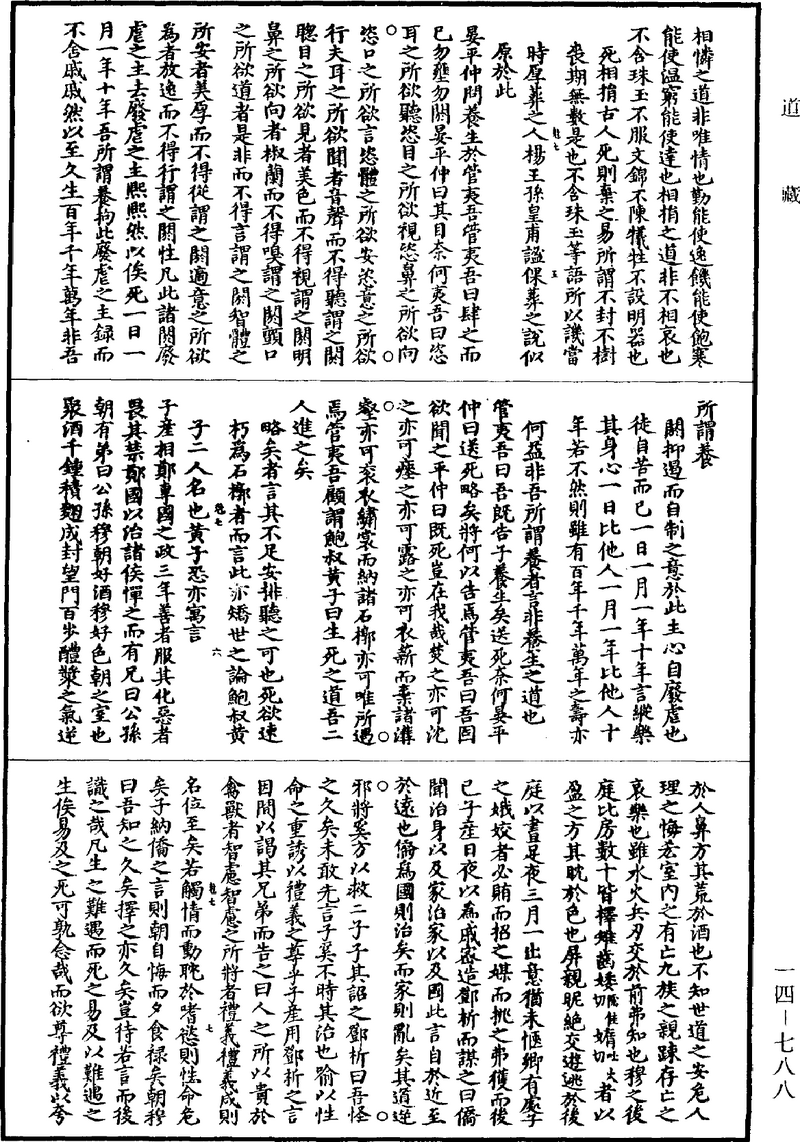 道藏
相憐之道非唯情也勤能使逸饑能使飽寒
能使溫窮能使達也相捐之道非不相哀也
不含珠玉不服文錦不陳犧牲不設明器也
死相捐古人死則棄之易所謂不封不樹
喪期無數是也不含珠玉等語所以譏當
時厚葬之人楊王孫皇甫謐倮葬之說似
原於此
晏平仲問養生於管夷吾管夷吾曰肆之而
已勿壅勿閼晏平仲曰其目奈何夷吾曰恣
耳之所欲聽恣目之所欲視恣鼻之所欲向
恣口之所欲言恣體之所欲安恣意之所欲
行夫耳之所欲聞者音聲而不得聽謂之閼
聰目之所欲見者美色而不得視謂之閼明
鼻之所欲向者椒蘭而不得嗅謂之閼顫口
之所欲道者是非而不得言謂之閼智體之
所安者美厚而不得從謂之閼適意之所欲
為者放逸而不得行謂之閼性凡此諸閼廢
虐之主去廢虐之主熙熙然以俟死一日一
月一年十年吾所謂養拘此廢虐之主録而
不舍戚戚然以至久生百年千年萬年非吾
所謂養
閼抑遏而自制之意於此主心自廢虐也
徒自苦而已一日一月一年十年言縱樂
其身心一日比他人一月一年比他人十
年若不然則雖有百年千年萬年之壽亦
何益非吾所謂養者言非養生之道也
管夷吾曰吾既告子養生矣送死奈何晏平
仲曰送死略矣將何以告焉管夷吾曰吾固
欲聞之平仲曰既死豈在我哉焚之亦可沈
之亦可瘞之亦可露之亦可衣薪而棄諸溝
壑亦可衮衣繡裳而納諸石槨亦可唯所遇
焉管夷吾顧謂鮑叔黃子曰生死之道吾二
人進之矣
略矣者言其不足安排聽之可也死欲速
朽為石槨者而言此亦矯世之論鮑叔黃
子二人名也黃子恐亦寓言
子産相鄭專國之政三年善者服其化惡者
畏其禁鄭國以治諸侯憚之而有兄曰公孫
朝有弟曰公孫穆朝好酒穆好色朝之室也
聚酒千鍾積麴成封望門百步醴漿之氣逆
於人鼻方其荒於酒也不知世道之安危人
理之悔吝室內之有亡九族之親踈存亡之
哀樂也雖水火兵刃交於前弗知也穆之後
庭比房數十皆擇稚齒婑媠者以
盈之方其耽於色也屏親昵絶交遊逃於後
庭以晝足夜三月一出意猶未愜鄉有處子
之娥姣者必賄而招之媒而挑之弗獲而後
已子産日夜以為戚密造鄧析而謀之曰僑
聞治身以及家治家以及國此言自於近至
於遠也僑為國則治矣而家則亂矣其道逆
邪將奚方以救二子子其詔之鄧析曰吾怪
之久矣未敢先言子奚不時其治也喻以性
命之重誘以禮義之尊乎子産用鄧析之言
因間以謁其兄弟而告之曰人之所以貴於
禽獸者智慮智慮之所將者禮義禮義成則
名位至矣若觸情而動耽於嗜慾則性命危
矣子納僑之言則朝自悔而夕食祿矣朝穆
曰吾知之久矣擇之亦久矣豈待若言而後
識之哉凡生之難遇而死之易及以難遇之
生俟易及之死可孰念哉而欲尊禮義以夸
一四－七八八